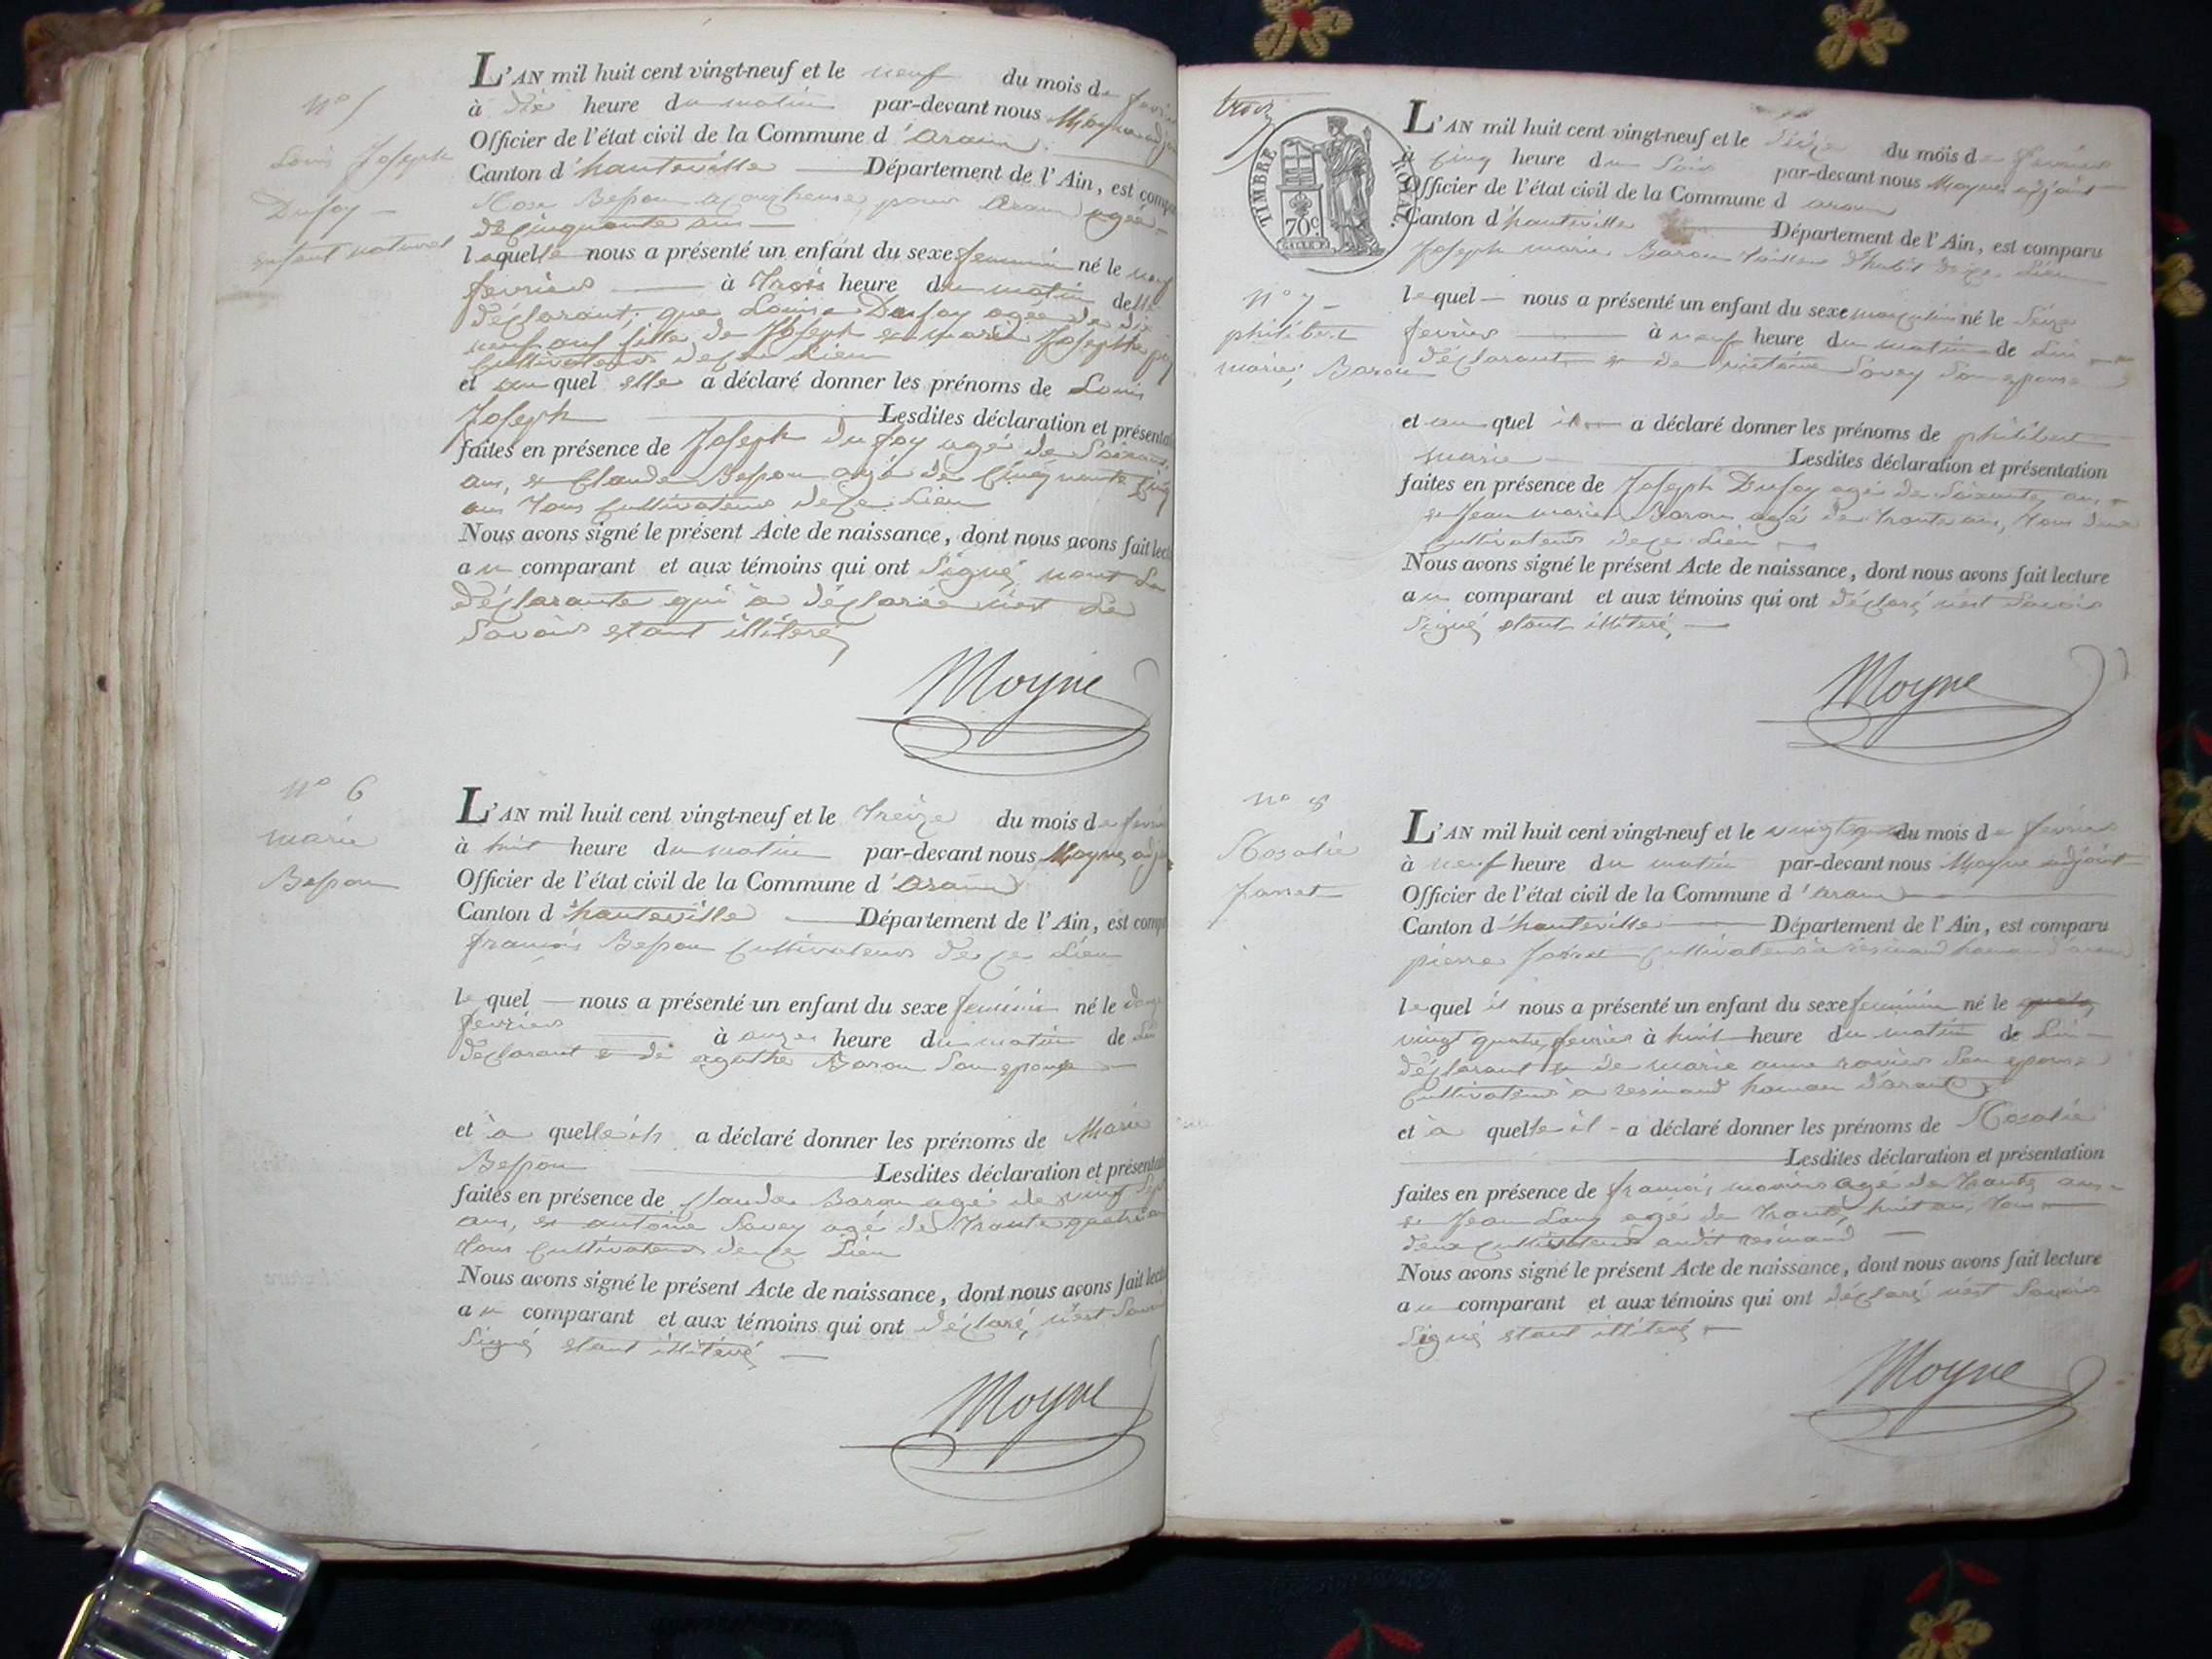 N° 5
Louis Joseph
Dufay
enfant naturel
L'AN mil huit cent vingt-neuf et le neuf du mois de
à dix heure du matin par-devant nous Moyne
Officier de l'état civil de la Commune d'aranc
Canton d'hauteville Département de l'Ain, est
Rose Besson agée
de cinquante ans
laquelle nous a présenté un enfant du sexe feminin né le neuf
fevrier à trois heure du matin de
déclarant, que Louise Dufay agée de dix
neuf ans fille de Joseph et marie Josephe
cultivateurs dece Lieu
et au quel elle a déclaré donner les prénoms de Louis
Joseph Lesdites déclaration et
faites en présence de Joseph dufay agé de Soixante
ans, et Claude Besson agé de Cinquante Cinq
ans tous cultivateurs dece Lieu
Nous avons signé le présent Acte de naissance, dont nous avons fait
au comparant et aux témoins qui ont Signé,
Déclarante qui a déclarée
Savoir etant illiteré
Moyne
N° 6
marie
Besson
L'AN mil huit cent vingt-neuf et le treize du mois de
à huit heure du matin par-devant nous Moyne
Officier de l'état civil de la Commune d'aranc
Canton d'hauteville Département de l'Ain, est
françois Besson cultivateur de ce Lieu
lequel nous a présenté un enfant du sexe feminin né le
fevrier à onze heure du matin de
déclarant et de agathe Baron Son epouse
et à quelle il a déclaré donner les prénoms de Marie
Besson Lesdites déclaration et
faites en présence de Claude Baron agé de vingt Sept
ans, et antoine Savey agé de trante quatre
tous cultivateurs dece Lieu
Nous avons signé le présent Acte de naissance, dont nous avons fait
au comparant et aux témoins qui ont déclaré, n'est
Signé etant illiteré
Moyne
trois
TIMBRE ROYAL.
70c
N° 7
philibert
marie, Baron
L'AN mil huit cent vingt-neuf et le Seize du mois de fevrier
à cinq heure du Soir par-devant nous Moyne adjoint
Officier de l'état civil de la Commune d aranc
Canton d'hauteville Département de l'Ain, est comparu
Joseph marie Baron tailleur d'habit dece Lieu
lequel nous a présenté un enfant du sexe masculin né le Seize
fevrier à neuf heure du matin de Lui
déclarant et de Savey Son epouse
et au quel il a déclaré donner les prénoms de philibert
marie Lesdites déclaration et présentation
faites en présence de Joseph Dufay agé de Soixante ans
et Jean marie Baron agé de trante ans, tous deux
cultivateurs dece Lieu
Nous avons signé le présent Acte de naissance, dont nous avons fait lecture
au comparant et aux témoins qui ont déclaré n'est Savoir
Signé etant illiteré
Moyne
N° 8
Rosalie
Jarret
L'AN mil huit cent vingt-neuf et le du mois de fevrier
à neuf heure du matin par-devant nous Moyne adjoint
Officier de l'état civil de la Commune d'aranc
Canton d'hauteville Département de l'Ain, est comparu
pierre Jarret cultivateur à resinand
lequel il nous a présenté un enfant du sexe feminin né le
vingt quatre fevrier à huit heure du matin de Lui
déclarant et de marie anne Son epouse
cultivateurs à resinand hameau d'aranc
et à quelle il a déclaré donner les prénoms de Rosalie
Lesdites déclaration et présentation
faites en présence de françois agé de trante ans
et Jean agé de trante, huit ans, tous
deux cultivateurs audit resinand
Nous avons signé le présent Acte de naissance, dont nous avons fait lecture
au comparant et aux témoins qui ont déclaré n'est Savoir
Signé etant illiteré
Moyne